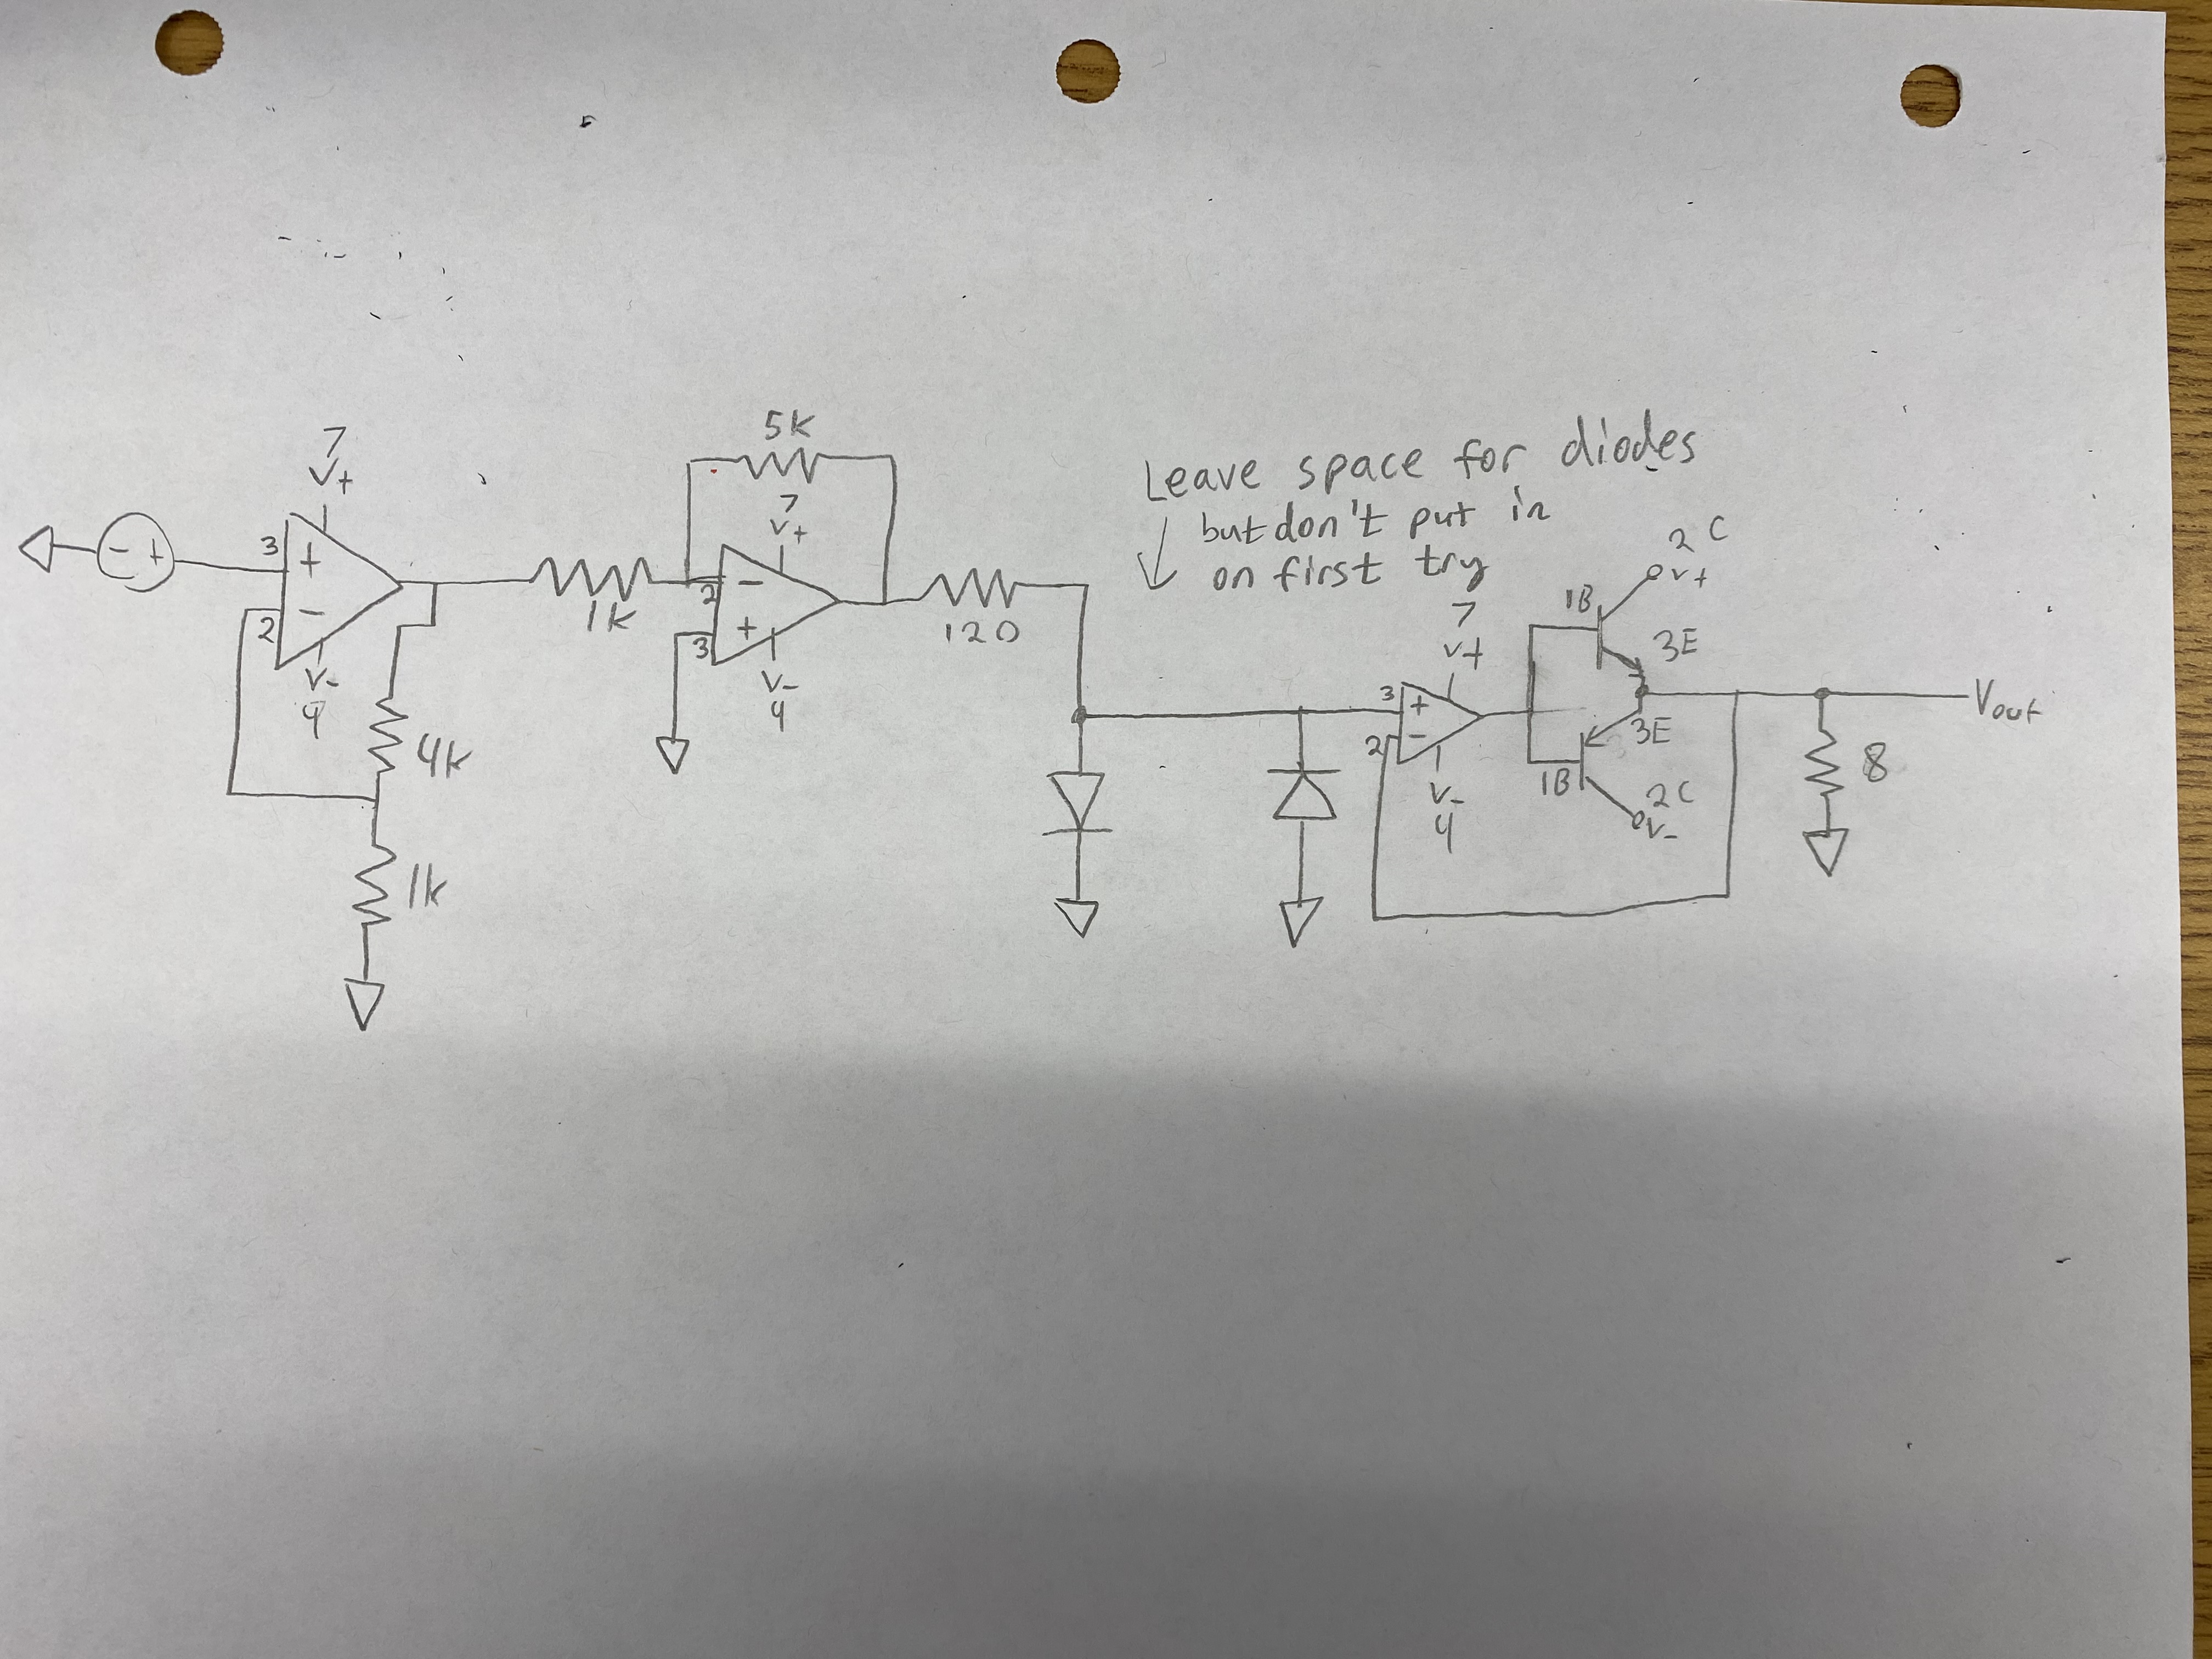 7
V+
3
+
-
2
V-
4
- +
4k
1k
1k
5k
7
V+
-
2
+
3
V-
4
120
Leave space for diodes
but don't put in
on first try
7
V+
3
+
-
2
V-
4
1B
2 C
V+
3E
3E
1B
2C
V-
8
Vout